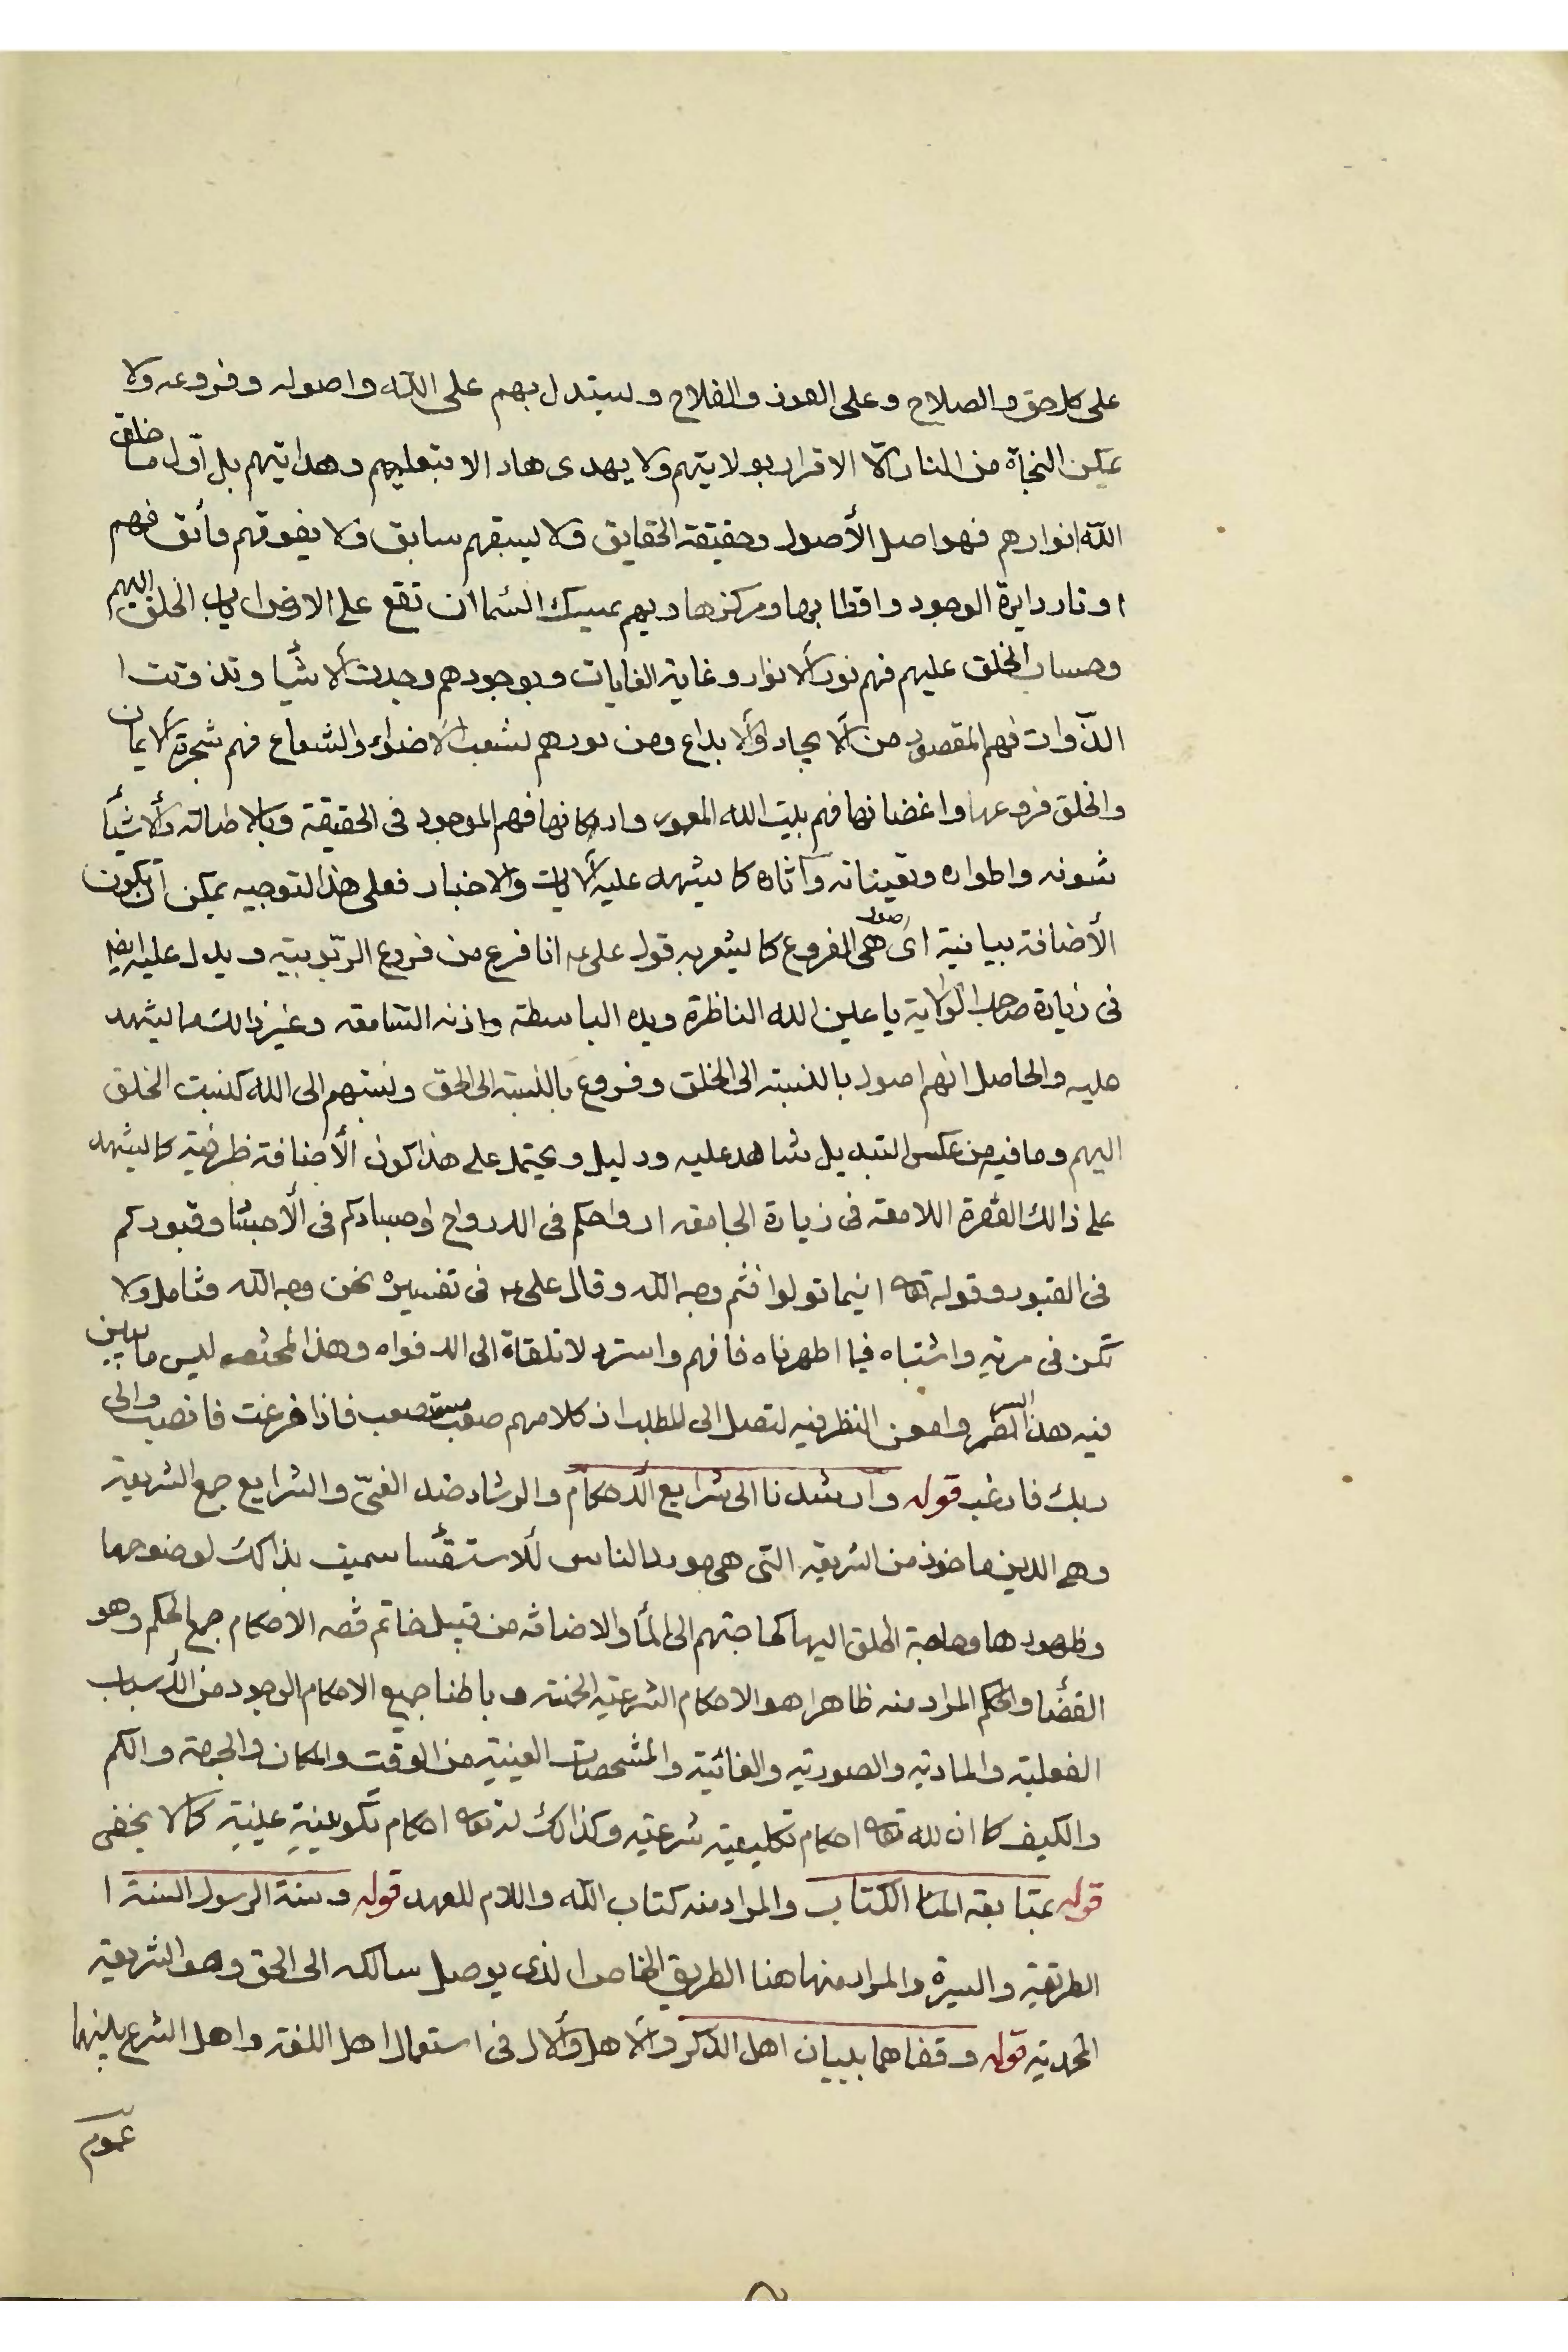 على كل حق والصلاح وعلى الفوز والفلاح ويستدل بهم على الله واصوله وفروعه ولا
يمكن النجاة من النار الّا الاقرار بولايتهم ولا يهدى هاد الا بتعليمهم وهدايتهم بل اوّل ما خلق
الله انوارهم فهو اصل الأصول وحقيقة الحقايق فلا يسبقهم سابق ولا يفوقهم فائق فهم
اوتار دايرة الوجود واقطابها ومركزها وبهم يمسك السّما ان تقع على الارض اياب الخلق اليهم
وحساب الخلق عليهم فهم نور الأنوار وغاية الغايات وبوجودهم وجدت الأشيا وتذوتت ا
الذّوات فهم المقصود من الأيجاد والأبداع ومن نورهم تشعب الأضواء والشعاع فهم شجرة الأيمان
والخلق فروعها واغضانها فهم بيت الله المعمور واركانها فهم الموجود فى الحقيقة وبالاطالته والأشيأ
شونه واطواره وتعيناته وآثاره كا يشهد عليه الأيات والاخبار فعلى هذا التوجيه يمكن ان يكون
الأضافة بيانية اى صور هى الفروع كا يشعر به قول على ع انا فرع من فروع الرّبوبيته ويدل عليه ايضا
فى زيارة صاحب الولاية يا عين الله الناظرة ويده الباسطة واذنه السّامعه وغير ذالك مما يشهد
عليه والحاصل انهم اصول بالنسبته الى الخلق وفروع بالنسبته الى الحق ونسبتهم الى الله كنسبت الخلق
اليهم وما فيه من عكس التبديل شاهد عليه ودليل ويحتمل على هذا كون الأضافة ظرفية كا يشهد
على ذالك الفقرة اللامعه فى زيارة الجامعه ارواحكم فى الارواح واجسادكم فى الأجسا وقبوركم
فى القبور وقوله تعه اينما تولوا فثم وجه الله وقال على ع فى تفسيره نحن وجه الله فتامل ولا
تكن فى مرية واشتباه فيما اظهرناه فافهم واستر ولا تلقاه الى الافواه وهذا المختصر ليس ما يبين
فيه هذا السر وامعن النظر فيه لتصل الى المطلب اذ كلامهم صعب مستصعب فاذا فرغت فانصب والى
ربك فارغب قوله وارشدنا الى شرايع الاحكام والرشاد ضد الغىّ والشرايع جمع الشريعة
وهى الدين ماخوذ من الشريعه التى هى مورد الناس للاستقأسا سميت بذالك لوضوحها
وظهورها وحاجة الخلق اليها كحاجتهم الى المأ والاضافه من قبيل خاتم فضه الاحكام جمع الحكم وهو
القضأ والحكم المراد منه ظاهرا هو الاحكام الشرعيته الخمسه وباطنا جميع الاحكام الوجود من الأسباب
الفعليته والمادية والصورتيه والغائيته والمشخصات العينية من الوقت والمكان والجهة والكم
والكيف كا ان لله تعه احكام تكليفيته شرعيته وكذالك له تعه احكام تكوينية عينية كالا يخفى
قوله بمتابعه الكتاب والمراد منه كتاب الله واللام للعهد قوله وسنة الرسول السنة ا
الطريقيه والسيره والمراد منها هنا الطريق الخاص الذى يوصل سالكه الى الحق وهو الشريعيه
المحمديته قوله وقفاهما ببيان اهل الذكر والأهل والأل فى استعمال اهل اللغه واهل الشرع بينهما
عموم